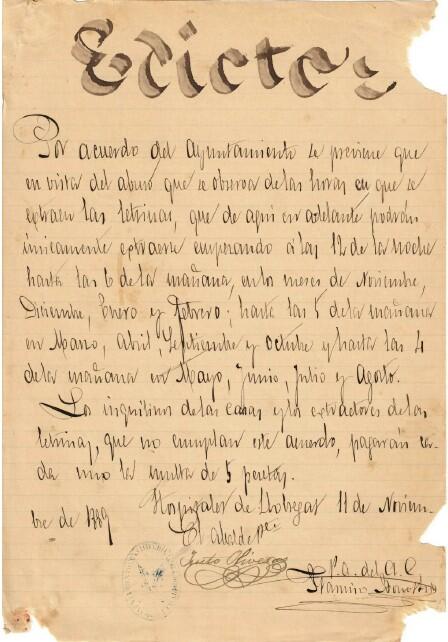 Edicto
Por acuerdo del Ayuntamiento se previene que
en vista del abuso que se observa de las horas en que se
extraen las letrinas, que de aquí en adelante podrán
únicamente extraerse empezando á las 12 de la noche
hasta las 6 de la mañana, en los meses de Noviembre,
Diciembre, Enero y Febrero; hasta las 5 de la mañana
en Marzo, Abril, Septiembre y Octubre y hasta las 4
de la mañana en Mayo, Junio, Julio y Agosto.
Los inquilinos de las casas y los extractores de las
letrinas, que no cumplan este acuerdo, pagarán ca-
da uno la multa de 5 pesetas.
Hospitalet de Llobregat 11 de Noviem-
bre de 1889
El Alcalde
Justo Oliveras
P. A. del A. C.